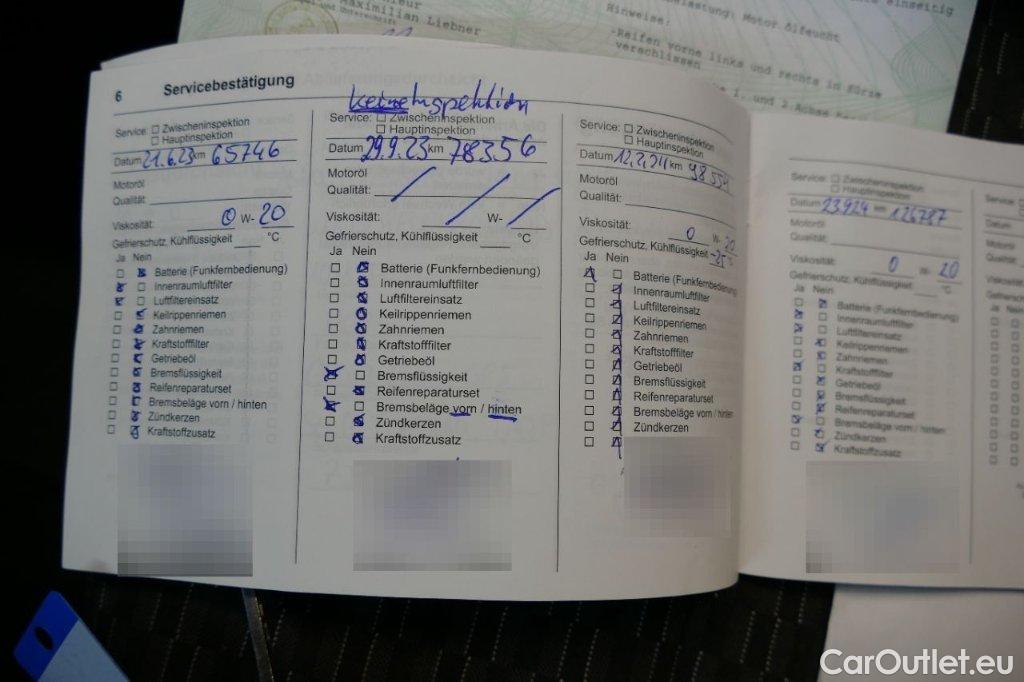 Maximilian Liebner
Hinweise:
Motor ölfeucht
-Reifen vorne links und rechts in Kürze
verschlissen
6 Servicebestätigung
keine Inspektion
Service: Zwischeninspektion
Hauptinspektion
Datum 21.6.23 km 65746
Motoröl
Qualität:
Viskosität: 0 W- 20
Gefrierschutz, Kühlflüssigkeit °C
Ja Nein
Batterie (Funkfernbedienung)
Innenraumluftfilter
Luftfiltereinsatz
Keilrippenriemen
Zahnriemen
Kraftstofffilter
Getriebeöl
Bremsflüssigkeit
Reifenreparaturset
Bremsbeläge vorn / hinten
Zündkerzen
Kraftstoffzusatz
Service: Zwischeninspektion
Hauptinspektion
Datum 29.9.23 km 78356
Motoröl
Qualität:
Viskosität: W-
Gefrierschutz, Kühlflüssigkeit °C
Ja Nein
Batterie (Funkfernbedienung)
Innenraumluftfilter
Luftfiltereinsatz
Keilrippenriemen
Zahnriemen
Kraftstofffilter
Getriebeöl
Bremsflüssigkeit
Reifenreparaturset
Bremsbeläge vorn / hinten
Zündkerzen
Kraftstoffzusatz
Service: Zwischeninspektion
Hauptinspektion
Datum 12.2.24 km
Motoröl
Qualität:
Viskosität: 0 W- 20
Gefrierschutz, Kühlflüssigkeit -25 °C
Ja Nein
Batterie (Funkfernbedienung
Innenraumluftfilter
Luftfiltereinsatz
Keilrippenriemen
Zahnriemen
Kraftstofffilter
Getriebeöl
Bremsflüssigkeit
Reifenreparaturset
Bremsbeläge vorn / hinten
Zündkerzen
Service: Zwischeninspektion
Hauptinspektion
Datum 23.9.24 km 126787
Motoröl
Qualität:
Viskosität: 0 W- 20
Gefrierschutz, Kühlflüssigkeit °C
Ja Nein
Batterie (Funkfernbedienung)
Innenraumluftfilter
Luftfiltereinsatz
Keilrippenriemen
Zahnriemen
Kraftstofffilter
Getriebeöl
Bremsflüssigkeit
Reifenreparaturset
Bremsbeläge vorn / hinten
Zündkerzen
Kraftstoffzusatz
CarOutlet.eu